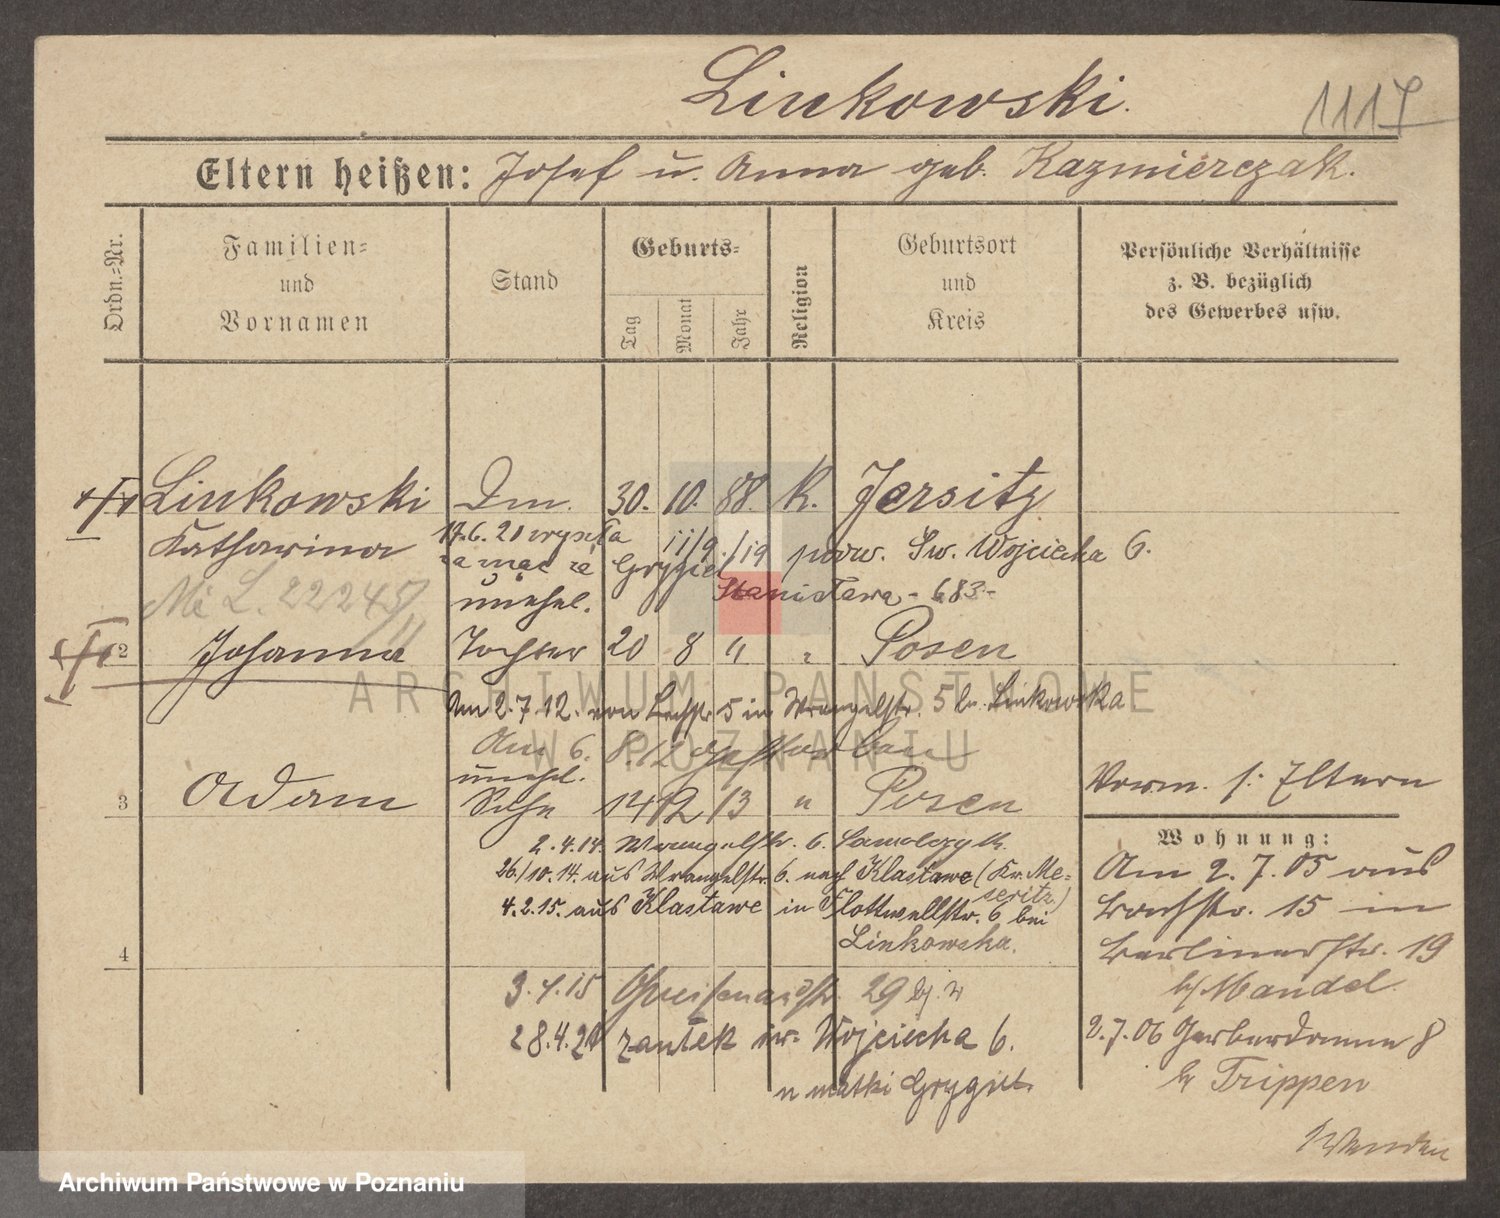 Linkowski.
1117
Eltern heißen: Josef u. Anna geb. Kazmierczak.
Ordn.=Nr.
Familien=
und
Vornamen
Stand
Geburts=
Tag
Monat
Jahr
Religion
Geburtsort
und
Kreis
Persönliche Verhältnisse
z. B. bezüglich
des Gewerbes usw.
Linkowski Dm. 30. 10. 88. k. Jersitz
Katharina 19.6.20 wyszła 11/9./19 Św. Wojciecha 6.
za mąż za Grygiel Stanisława - 683-
Mi L. 22245/
unehel.
2 Johanna Tochter 20 8 " " Posen
Am 2.7.12. von 5 in Wrangelstr. 5 Linkowska
Am 6. 8.12 gestorben
unehel.
3 Adam Sohn 14 12 13 " Posen
Vorm. s: Eltern
Wohnung:
2.4.14. Wrangelstr. 6.
26./10.14. aus Wrangelstr. 6. nach Klastawe (Kr. Me=
seritz.)
4.2.15. aus Klastawe in Flottwellstr. 6 bei
Linkowska.
4
3.4.15 29
28.4.21 zaułek św. Wojciecha 6.
u matki Grygiel.
Am 2.7.05 aus
15 in
Berlinerstr. 19
b/ Mandel
2.7.06 Gerberdamm 8
b/ Trippen
Wenden
ARCHIWUM PAŃSTWOWE
W POZNANIU
Archiwum Państwowe w Poznaniu